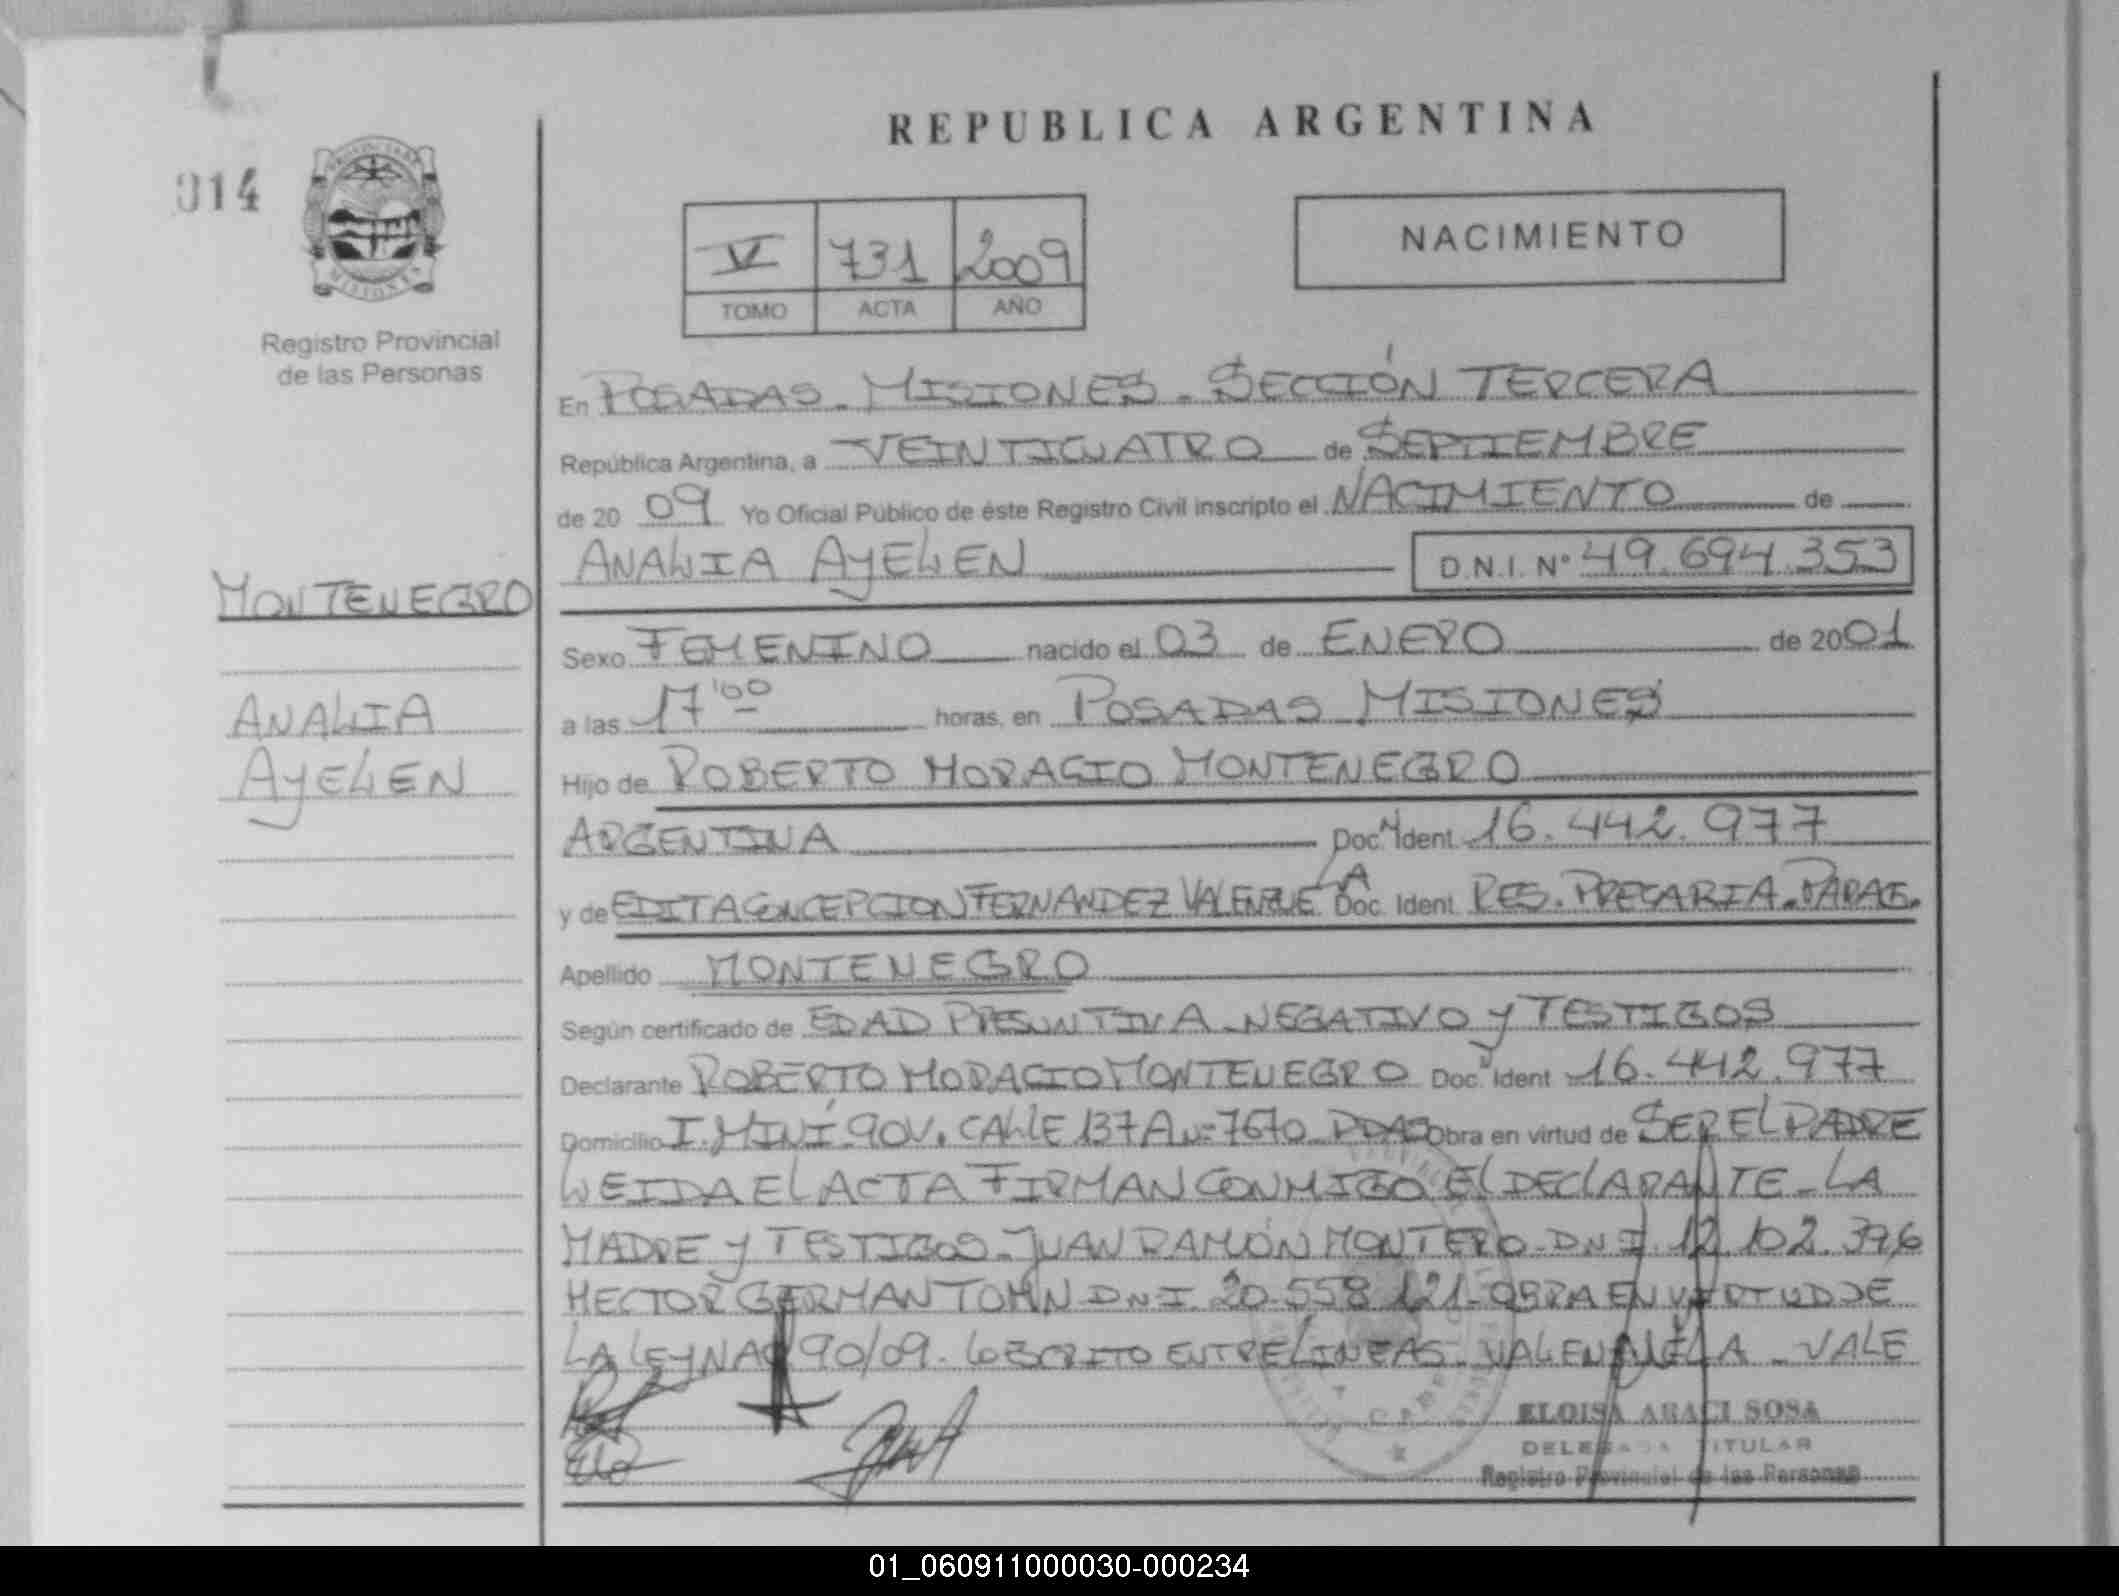 REPUBLICA ARGENTINA
014
NACIMIENTO
V 731 2009
TOMO ACTA AÑO
Registro Provincial
de las Personas
En POSADAS - MISIONES - SECCIÓN TERCERA
República Argentina, a VEINTICUATRO de SEPTIEMBRE
de 20 09 Yo Oficial Público de éste Registro Civil inscripto el NACIMIENTO de
ANALIA AYELEN D.N.I. Nº 49.694.353
MONTENEGRO
ANALIA
AYELEN
Sexo FEMENINO nacido el 03 de ENERO de 2001
a las 17'00 horas, en POSADAS MISIONES
Hijo de ROBERTO HORACIO MONTENEGRO
ARGENTINA Doc. Ident. 16.442.977
y de EDITA CONCEPCION FERNANDEZ VALENZUELA Doc. Ident. RES. PRECARIA. PARAG.
Apellido MONTENEGRO
Según certificado de EDAD PRESUNTIVA - NEGATIVO y TESTIGOS
Declarante ROBERTO HORACIO MONTENEGRO Doc. Ident 16.442.977
Domicilio I. MINÍ 90V. CALLE 137A Nº 7670 PDAS Obra en virtud de SER EL PADRE
LEIDA EL ACTA FIRMAN CONMIGO EL DECLARANTE - LA
MADRE y TESTIGOS - JUAN RAMÓN MONTERO - DNI. 12.102.396
HECTOR GERMAN TOMN DNI. 20.558.121 - OBRA EN VIRTUD DE
LA LEY NAC 90/09. LO ESCRITO ENTRE LINEAS - VALENZUELA - VALE
ELOISA ARACI SOSA
DELEGADA TITULAR
Registro Provincial de las Personas
01_060911000030-000234